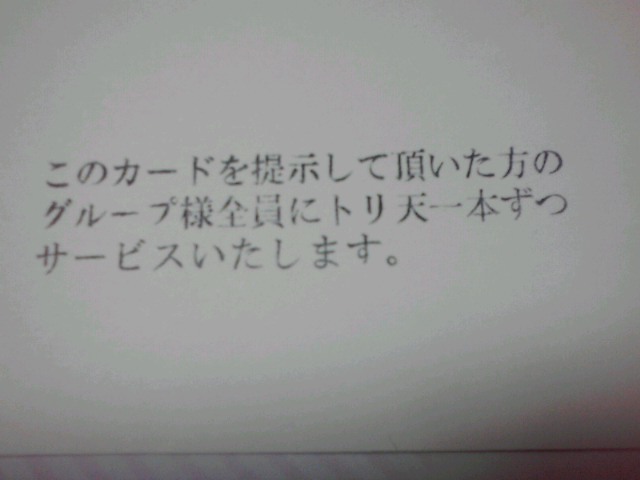 このカードを提示して頂いた方の
グループ様全員にトリ天一本ずつ
サービスいたします。